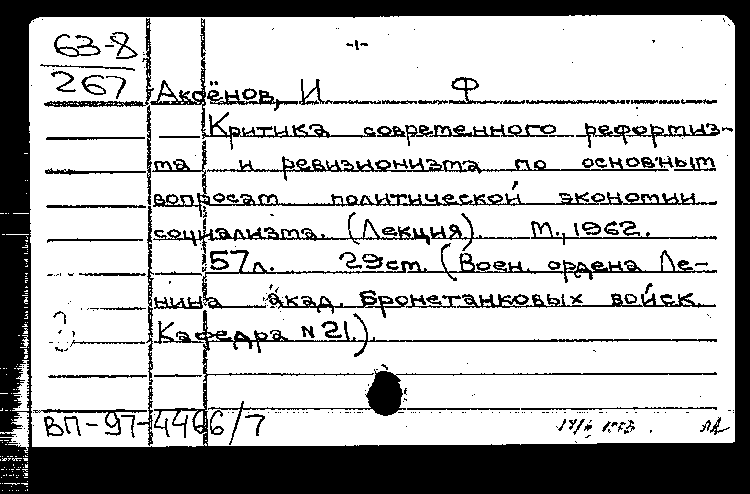 63-8
267
-1-
Аксёнов, И Ф
Критика современного реформиз-
ма и ревизионизма по основным
вопросам политической экономии
социализма. (Лекция). М., 1962.
57л. 29см. (Воен. ордена Ле-
нина акад. Бронетанковых войск.
Кафедра N 21.).
ВП-97-4466/7